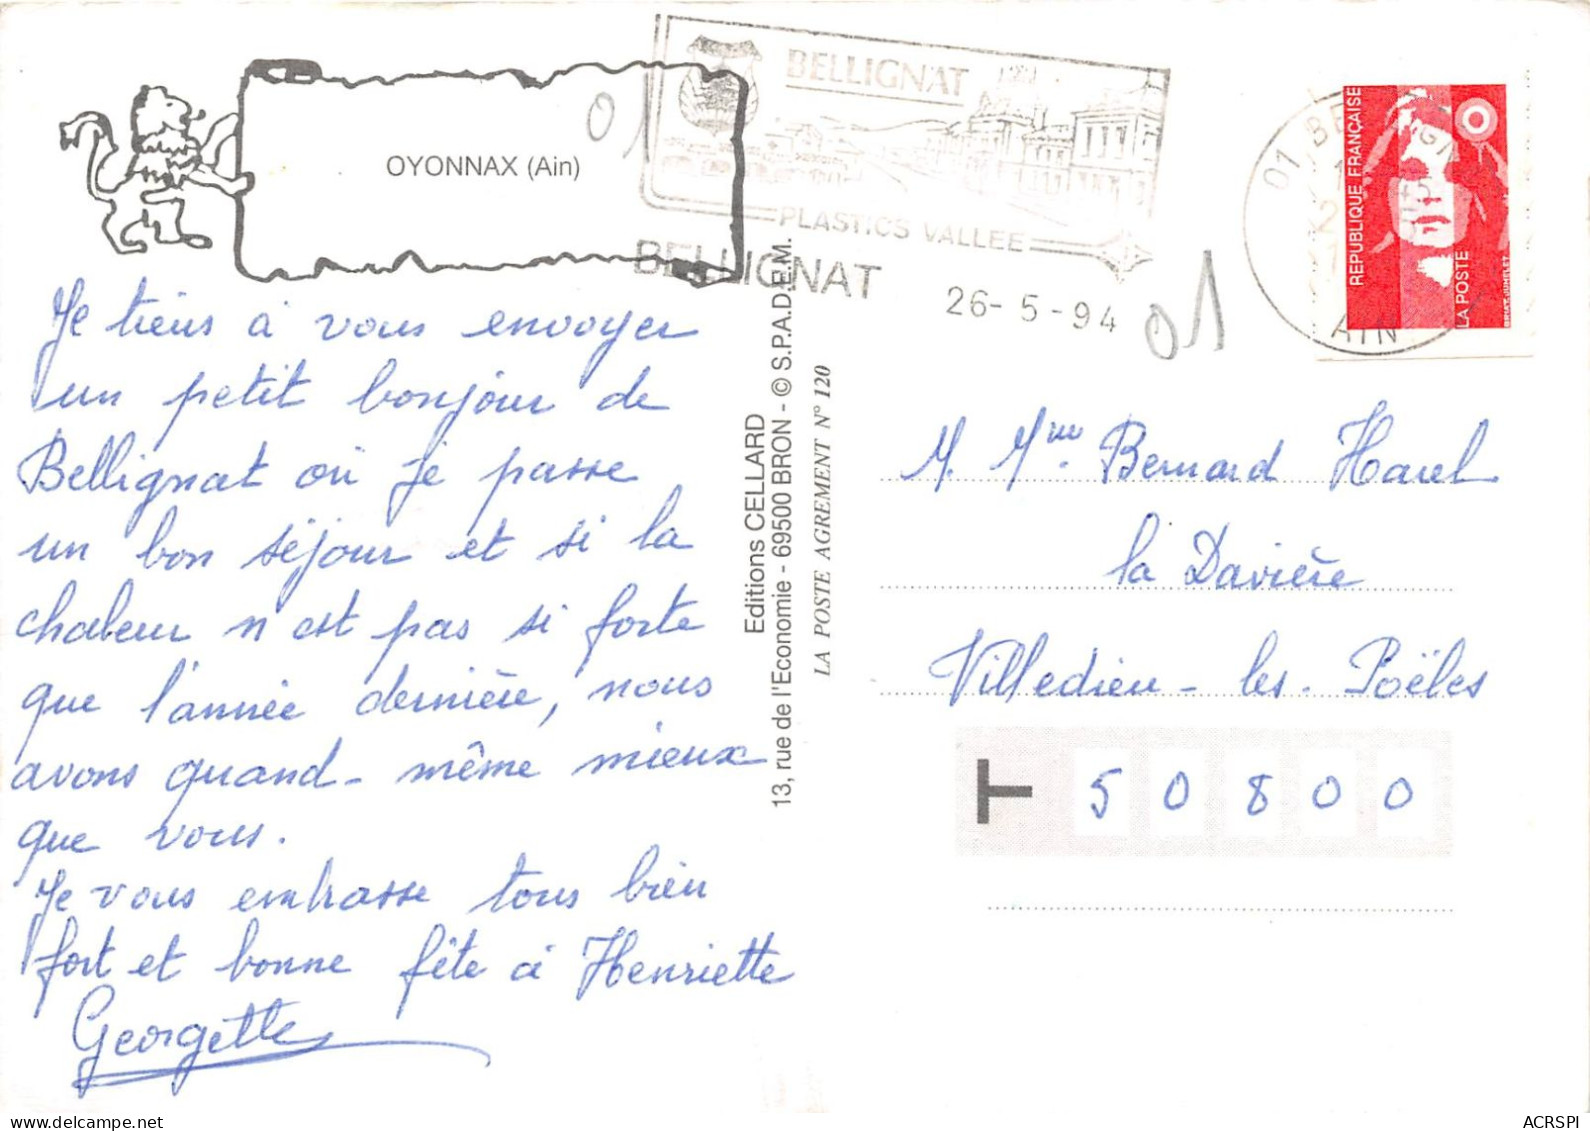 OYONNAX (Ain)
01
BELLIGNAT
PLASTICS VALLEE
BELLIGNAT
26-5-94
01
01 BELLIGN
AIN
REPUBLIQUE FRANÇAISE
LA POSTE
BRIAT. JUMELET
Je tiens à vous envoyer
un petit bonjour de
Bellignat où je passe
un bon séjour et si la
chaleur n'est pas si forte
que l'année dernière, nous
avons quand-même mieux
que vous.
Je vous embrasse tous bien
fort et bonne fête à Henriette
Georgette
Editions CELLARD
13, rue de l'Economie - 69500 BRON - © S.P.A.D.E.M.
LA POSTE AGREMENT N° 120
M. Mme. Bernard Harel
la Davière
Villedieu-les-Poëles
T 50800
ACRSPI